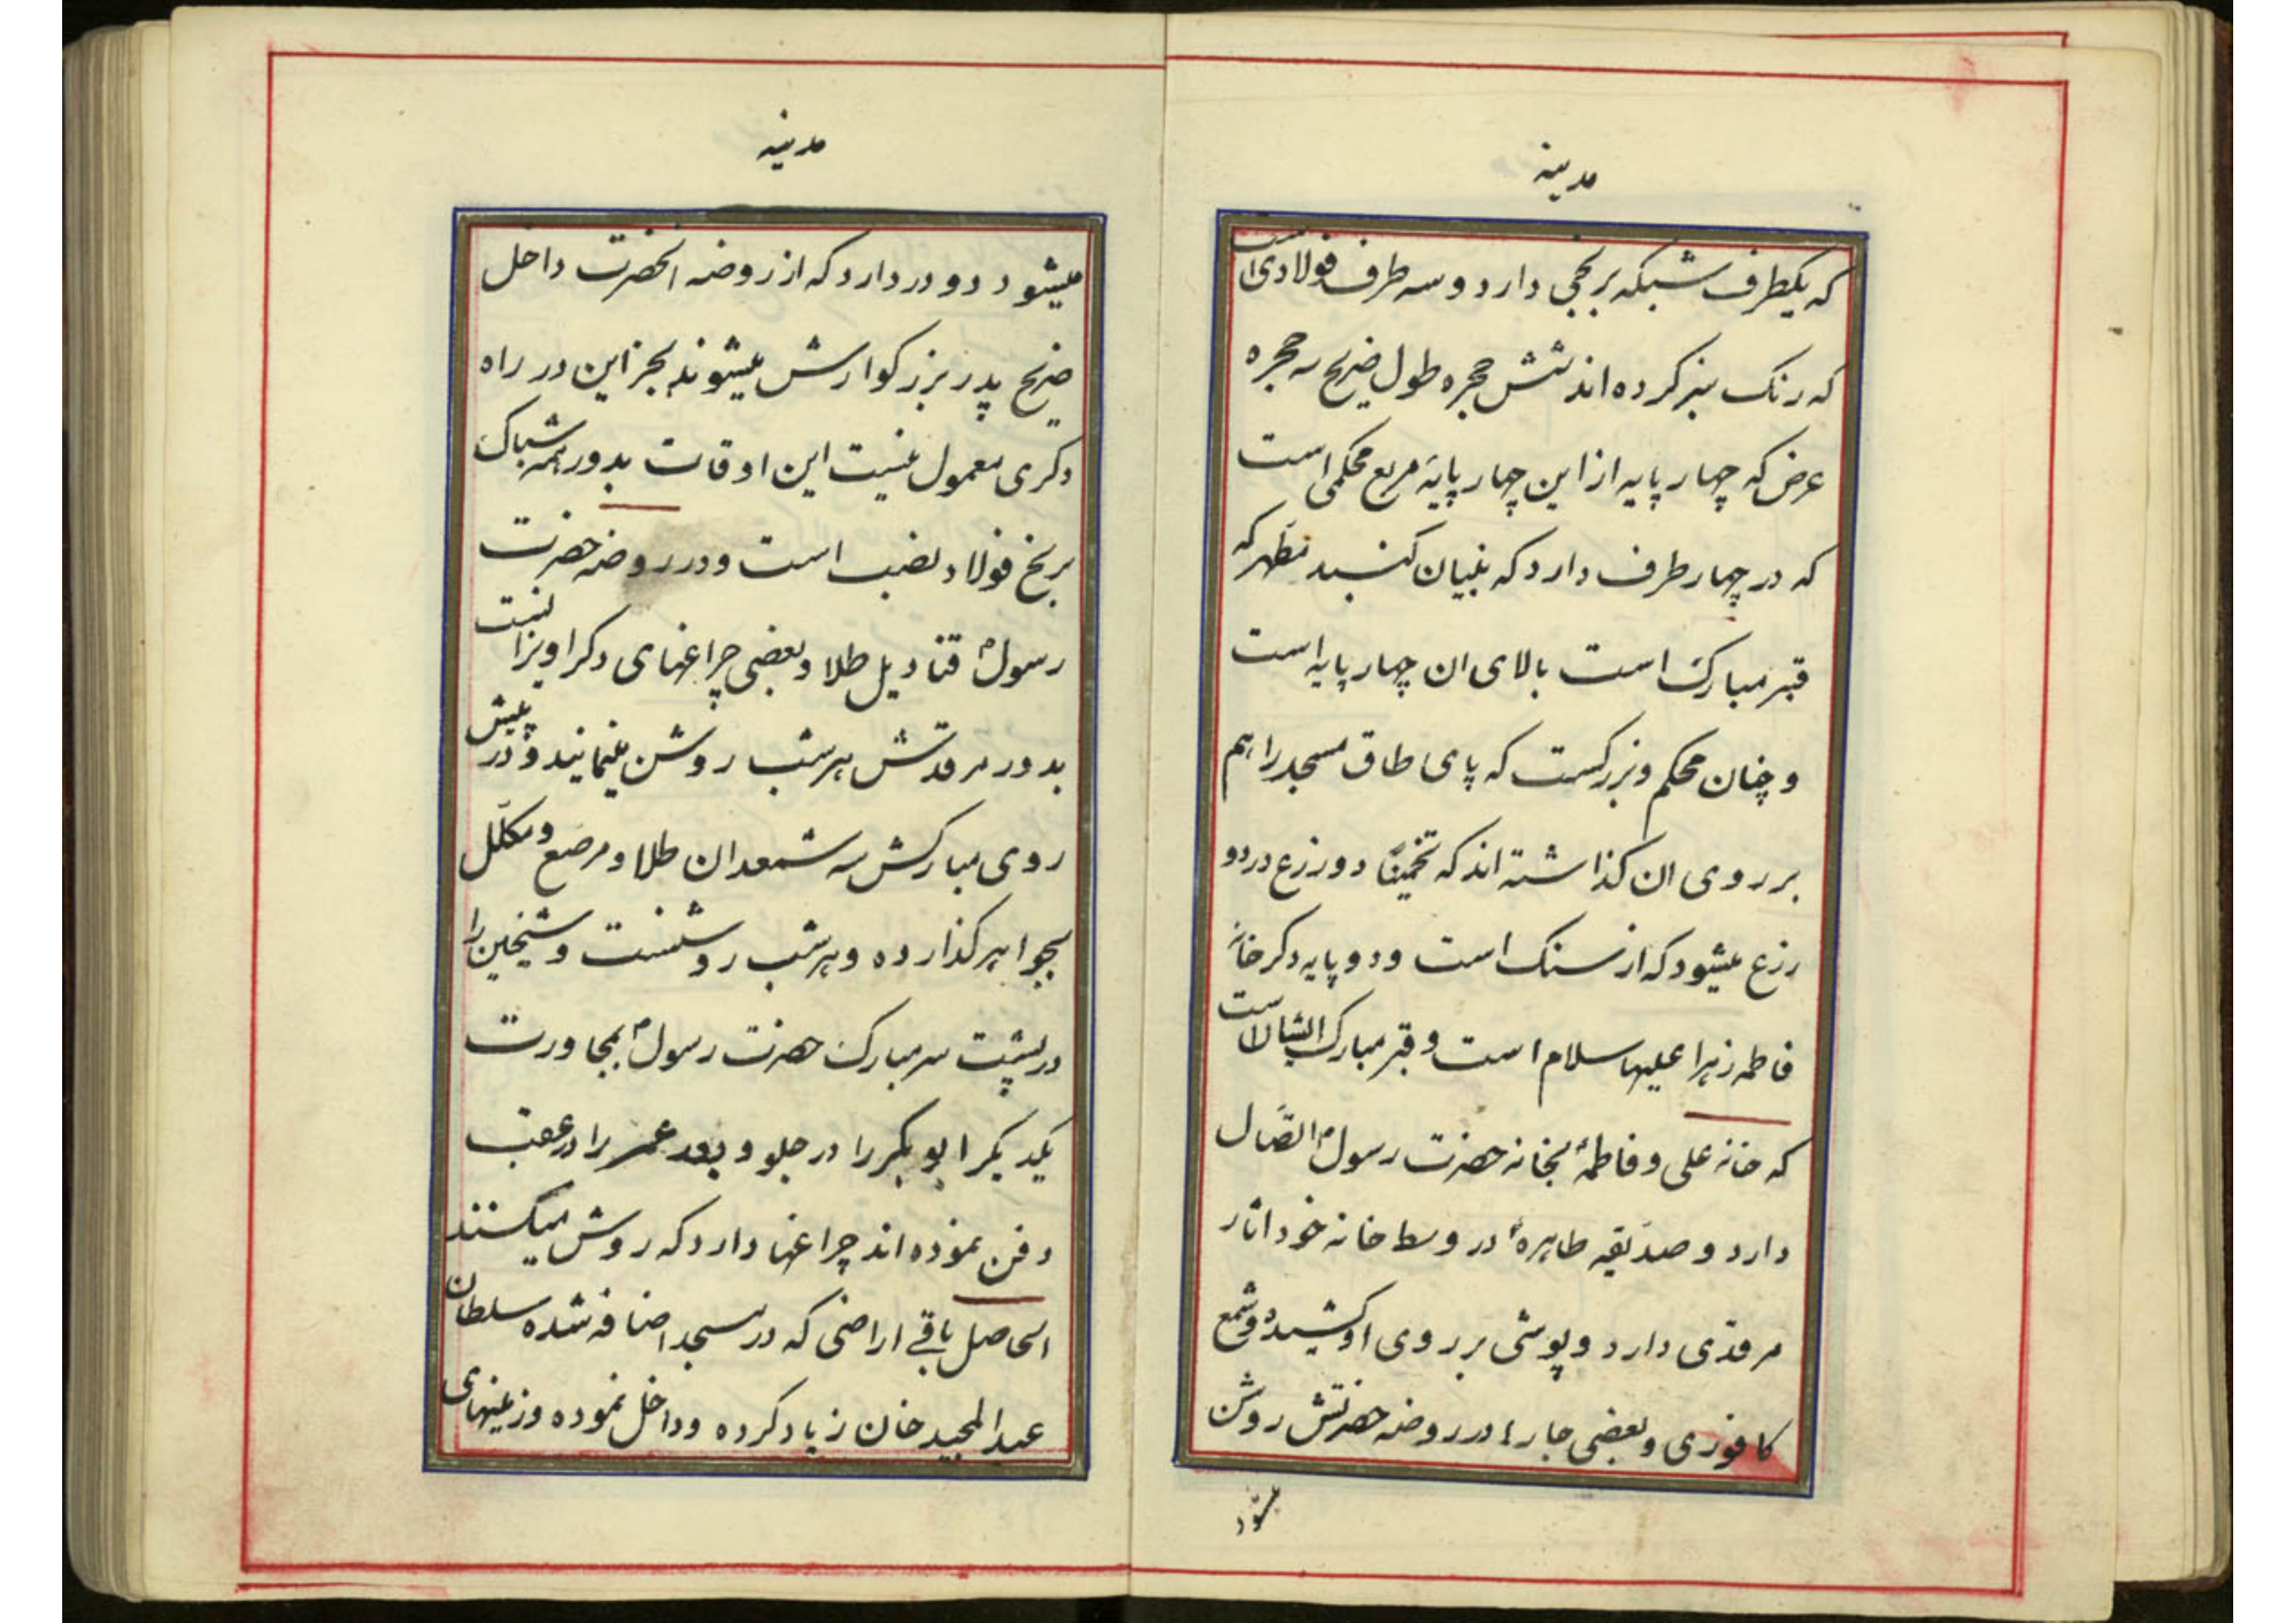 مدینه
که یکطرف شبکه برنجی دارد و سه طرف فولادی است
که رنک سبز کرده اند شش حجره طول ضریح سه حجره
عرض که چهار پایه از این چهار پایهٔ مربع محکمی است
که در چهار طرف دارد که بنیان کنبد مطهر که
قبر مبارک است بالای ان چهار پایه است
و چنان محکم و بزرکست که پای طاق مسجد را هم
بر روی ان کذاشته اند که تخمیناً دو رزع در دو
رزع میشود که از سنک است و دو پایه دکر خانهٔ
فاطمه زهرا علیها سلام است و قبر مبارک ایشان است
که خانه علی و فاطمهٔ بخانه حضرت رسول ص اتصال
دارد و صدیقه طاهرهٔ در وسط خانه خود اثار
مرقدی دارد و پوشی بر روی او کشیده و شمع
کافوری و بعضی جارها در روضه حضرتش روشن
میشود
مدینه
میشود دو در دارد که از روضه انحضرت داخل
ضریح پدر بزرکوارش میشوند بجز این در راه
دکری معمول نیست این اوقات بدور همه شباک
برنج فولاد نصب است و در روضه حضرت
رسول ص قنادیل طلا و بعضی چراغهای دکر اویزانست
بدور مرقدش هر شب روشن مینمایند و در پیش
روی مبارکش سه شمعدان طلا و مرصع و مکلّل
بجواهر کذارده و هر شب روشنست و شیخین را
در پشت سر مبارک حضرت رسول ص بمجاورت
یکدیکر ابوبکر را در جلو و بعد عمر را در عقب
دفن نموده اند چراغها دارد که روشن میکنند
الحاصل باقی اراضی که در مسجد اضافه شده سلطان
عبدالمجید خان زیاد کرده و داخل نموده و زمینهای